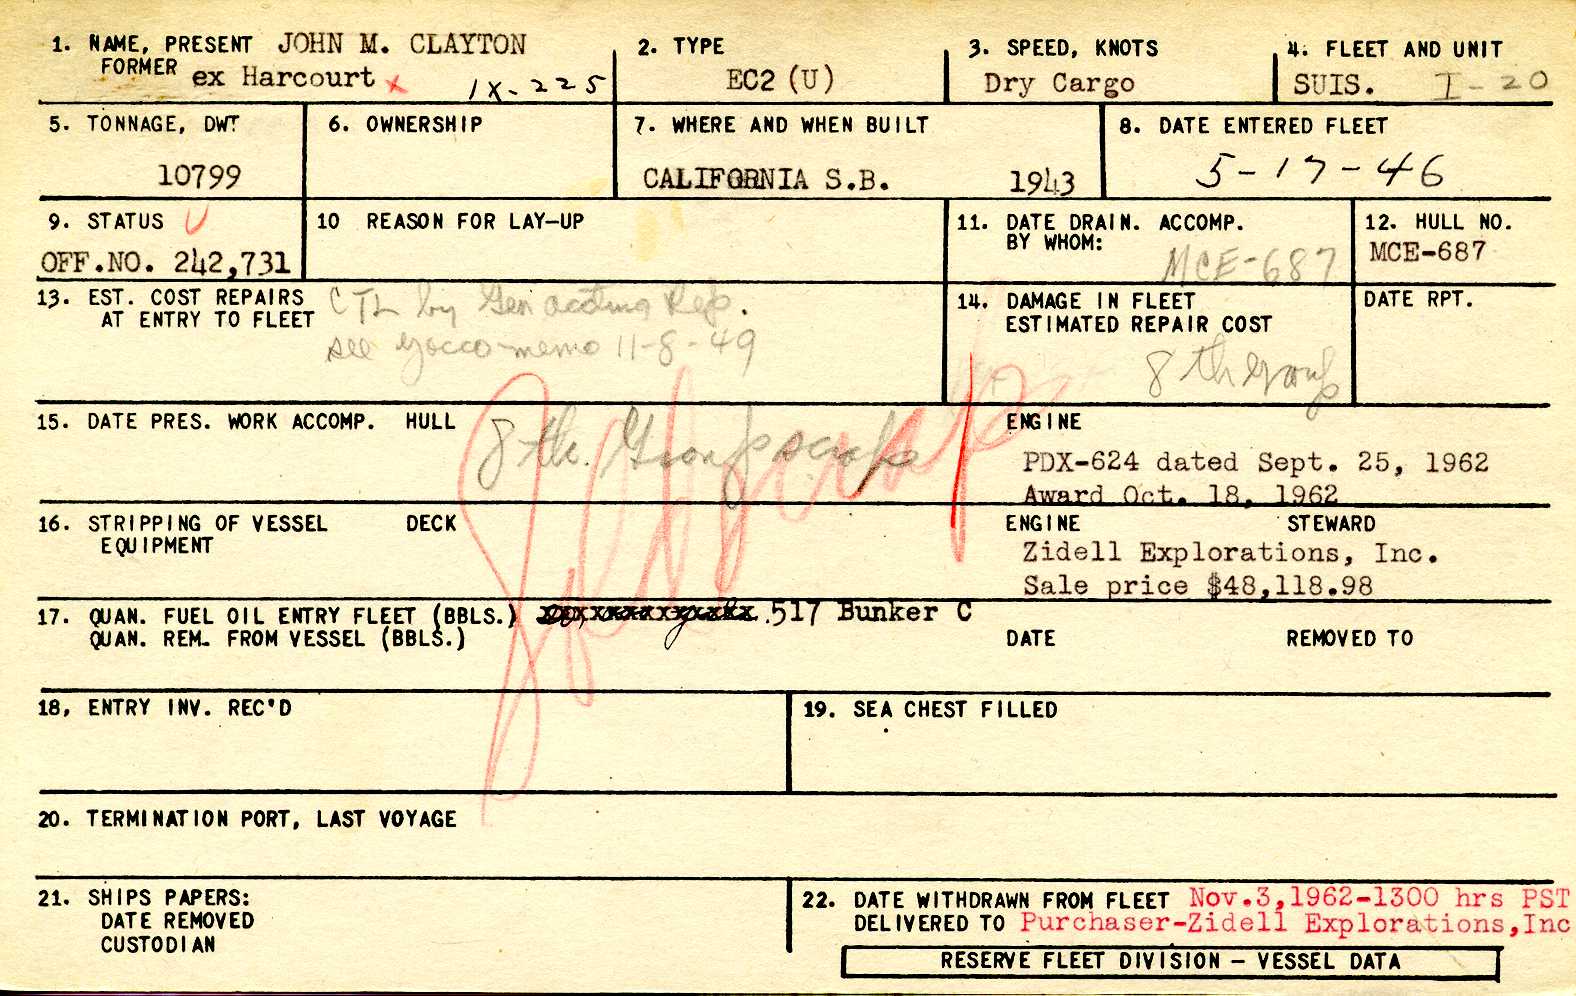 1. NAME, PRESENT JOHN M. CLAYTON
FORMER ex Harcourt x IX-225
2. TYPE
EC2 (U)
3. SPEED, KNOTS
Dry Cargo
4. FLEET AND UNIT
SUIS. I-20
5. TONNAGE, DWT
10799
6. OWNERSHIP
7. WHERE AND WHEN BUILT
CALIFORNIA S.B. 1943
8. DATE ENTERED FLEET
5-17-46
9. STATUS U
OFF.NO. 242,731
10 REASON FOR LAY-UP
11. DATE DRAIN. ACCOMP.
BY WHOM:
MCE-687
12. HULL NO.
MCE-687
13. EST. COST REPAIRS
AT ENTRY TO FLEET
CTL by Gen Rep.
see memo 11-8-49
14. DAMAGE IN FLEET
ESTIMATED REPAIR COST
8th Group
DATE RPT.
15. DATE PRES. WORK ACCOMP. HULL
8th. Group scrap
Scrap
ENGINE
PDX-624 dated Sept. 25, 1962
Award Oct. 18, 1962
16. STRIPPING OF VESSEL DECK
EQUIPMENT
ENGINE STEWARD
Zidell Explorations, Inc.
Sale price $48,118.98
17. QUAN. FUEL OIL ENTRY FLEET (BBLS.) .517 Bunker C
QUAN. REM. FROM VESSEL (BBLS.) DATE REMOVED TO
18, ENTRY INV. REC'D
19. SEA CHEST FILLED
20. TERMINATION PORT, LAST VOYAGE
21. SHIPS PAPERS:
DATE REMOVED
CUSTODIAN
22. DATE WITHDRAWN FROM FLEET Nov.3,1962-1300 hrs PST
DELIVERED TO Purchaser-Zidell Explorations,Inc
RESERVE FLEET DIVISION - VESSEL DATA